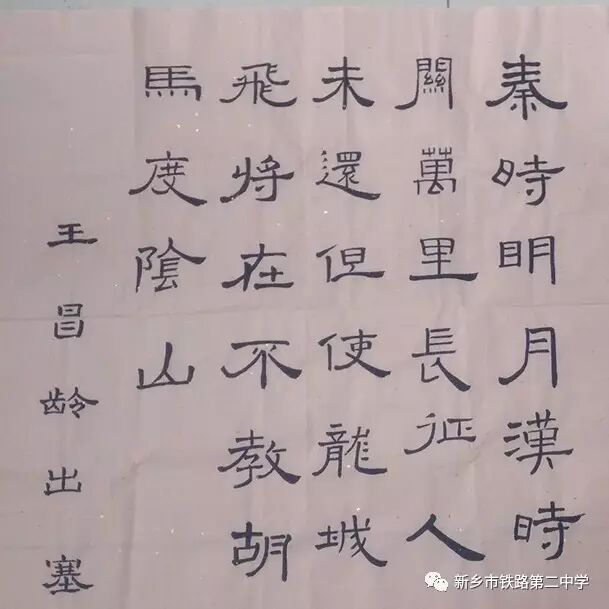 秦時明月漢時
關萬里長征人
未還但使龍城
飛將在不教胡
馬度陰山
王昌龄出塞
新乡市铁路第二中学